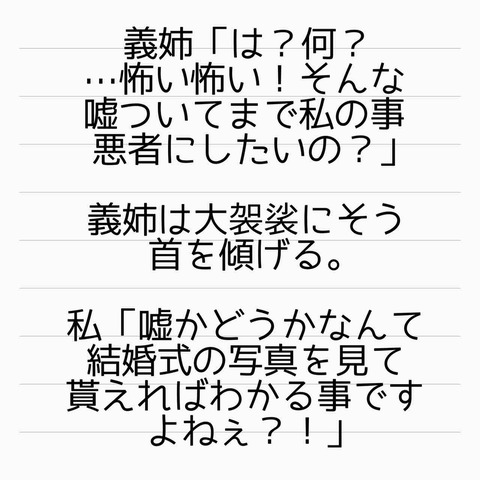 義姉「は？何？
…怖い怖い！そんな
嘘ついてまで私の事
悪者にしたいの？」
義姉は大袈裟にそう
首を傾げる。
私「嘘かどうかなんて
結婚式の写真を見て
貰えればわかる事です
よねぇ？！」